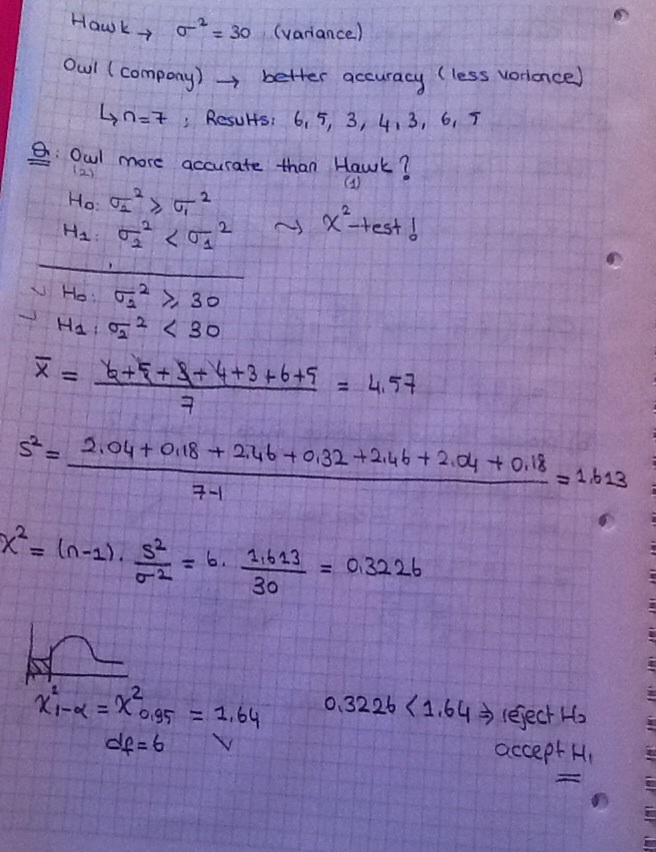 Hawk → σ² = 30 (variance)
Owl (company) → better accuracy (less variance)
↳ n=7 ; Results: 6, 5, 3, 4, 3, 6, 5
Q: Owl more accurate than Hawk?
(2) (1)
H₀: σ₂² ⩾ σ₁²
H₁: σ₂² < σ₁² ⇝ X²-test!
✓ H₀: σ₂² ⩾ 30
→ H₁: σ₂² < 30
x̄ = (6+5+3+4+3+6+5) / 7 = 4.57
S² = (2.04 + 0.18 + 2.46 + 0.32 + 2.46 + 2.04 + 0.18) / (7-1) = 1.613
X² = (n-1) · S²/σ² = 6 · 1.613/30 = 0.3226
X²₁₋α = X²₀.₉₅ = 1.64 0.3226 < 1.64 ⇒ reject H₀
df=6 ✓ accept H₁